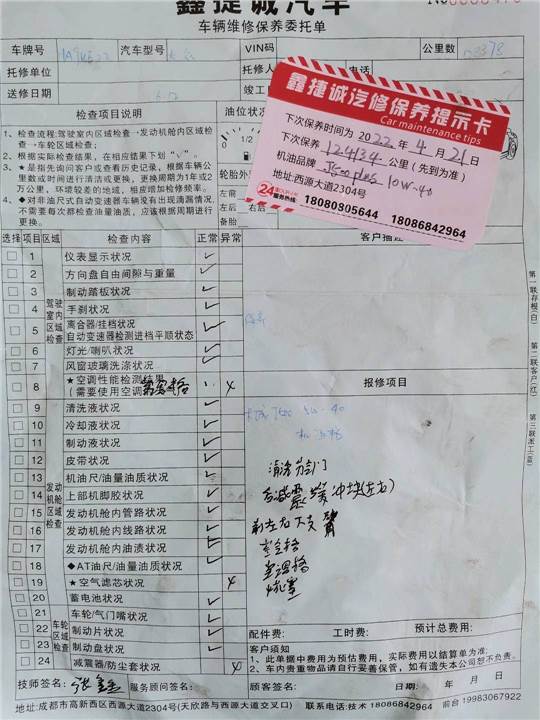 鑫捷诚汽车
车辆维修保养委托单
车牌号
汽车型号
VIN码
公里数
托修单位
托修人
电话
送修日期
竣工
检查项目说明
油位状况
1、检查流程:驾驶室内区域检查→发动机舱内区域检查→车轮区域检查;
2、根据实际检查结果,在相应结果下划“√”。
3、★是指先询问客户或查看历史记录,根据车辆公里数或时间进行清洁或更换,更换周期为1年或2万公里,环境较差的地域,相应增加检修频率。
4、◆对非油尺式自动变速器车辆没有出现滴漏情况,不需要每次都检查油量油质,应该根据周期进行更换。
1/2
轮胎外
左前
左后
右后
备胎
鑫捷诚汽修保养提示卡
Car maintenance tips
下次保养时间为 2022 年 4 月 21 日
下次保养 124134 公里(先到为准)
机油品牌 J500plus 10W-40
地址:西源大道2304号
24 服务热线: 18080805644 18086842964
选择 项目 区域 检查内容 正常 异常
驾驶室内区域检查
1 仪表显示状况
2 方向盘自由间隙与重量
3 制动踏板状况
4 手刹状况
5 离合器/挂档状况
自动变速器检测进档平顺状态
6 灯光/喇叭状况
7 风窗玻璃洗涤状况
8 ★空调性能检测结果
(需要使用空调
发动机舱区域检查
9 清洗液状况
10 冷却液状况
11 制动液状况
12 皮带状况
13 机油尺/油量油质状况
14 上部机脚胶状况
15 发动机舱内管路状况
16 发动机舱内线路状况
17 发动机舱内油渍状况
18 ◆AT油尺/油量油质状况
19 ★空气滤芯状况
20 蓄电池状况
车轮区域检查
21 车轮/气门嘴状况
22 制动片状况
23 制动盘状况
24 减震器/防尘套状况
客户描述
报修项目
清洗节气门
后减震缓冲块(左右)
前左右下支臂
空气格
空调格
火花塞
配件费:
工时费:
预计总费用:
客户须知
1、此单据中费用为预估费用,实际费用以结算单为准;
2、车内贵重物品请自行妥善保管,如有遗失本公司恕不负责。
技师签名:
服务顾问签名:
顾客签名:
日期: 年 月 日
地址:成都市高新西区西源大道2304号(天欣路与西源大道交叉口)
联系电话:技术 18086842964
前台 19983067922
第一联存根(白)
第二联客户(红)
第三联施工(蓝)